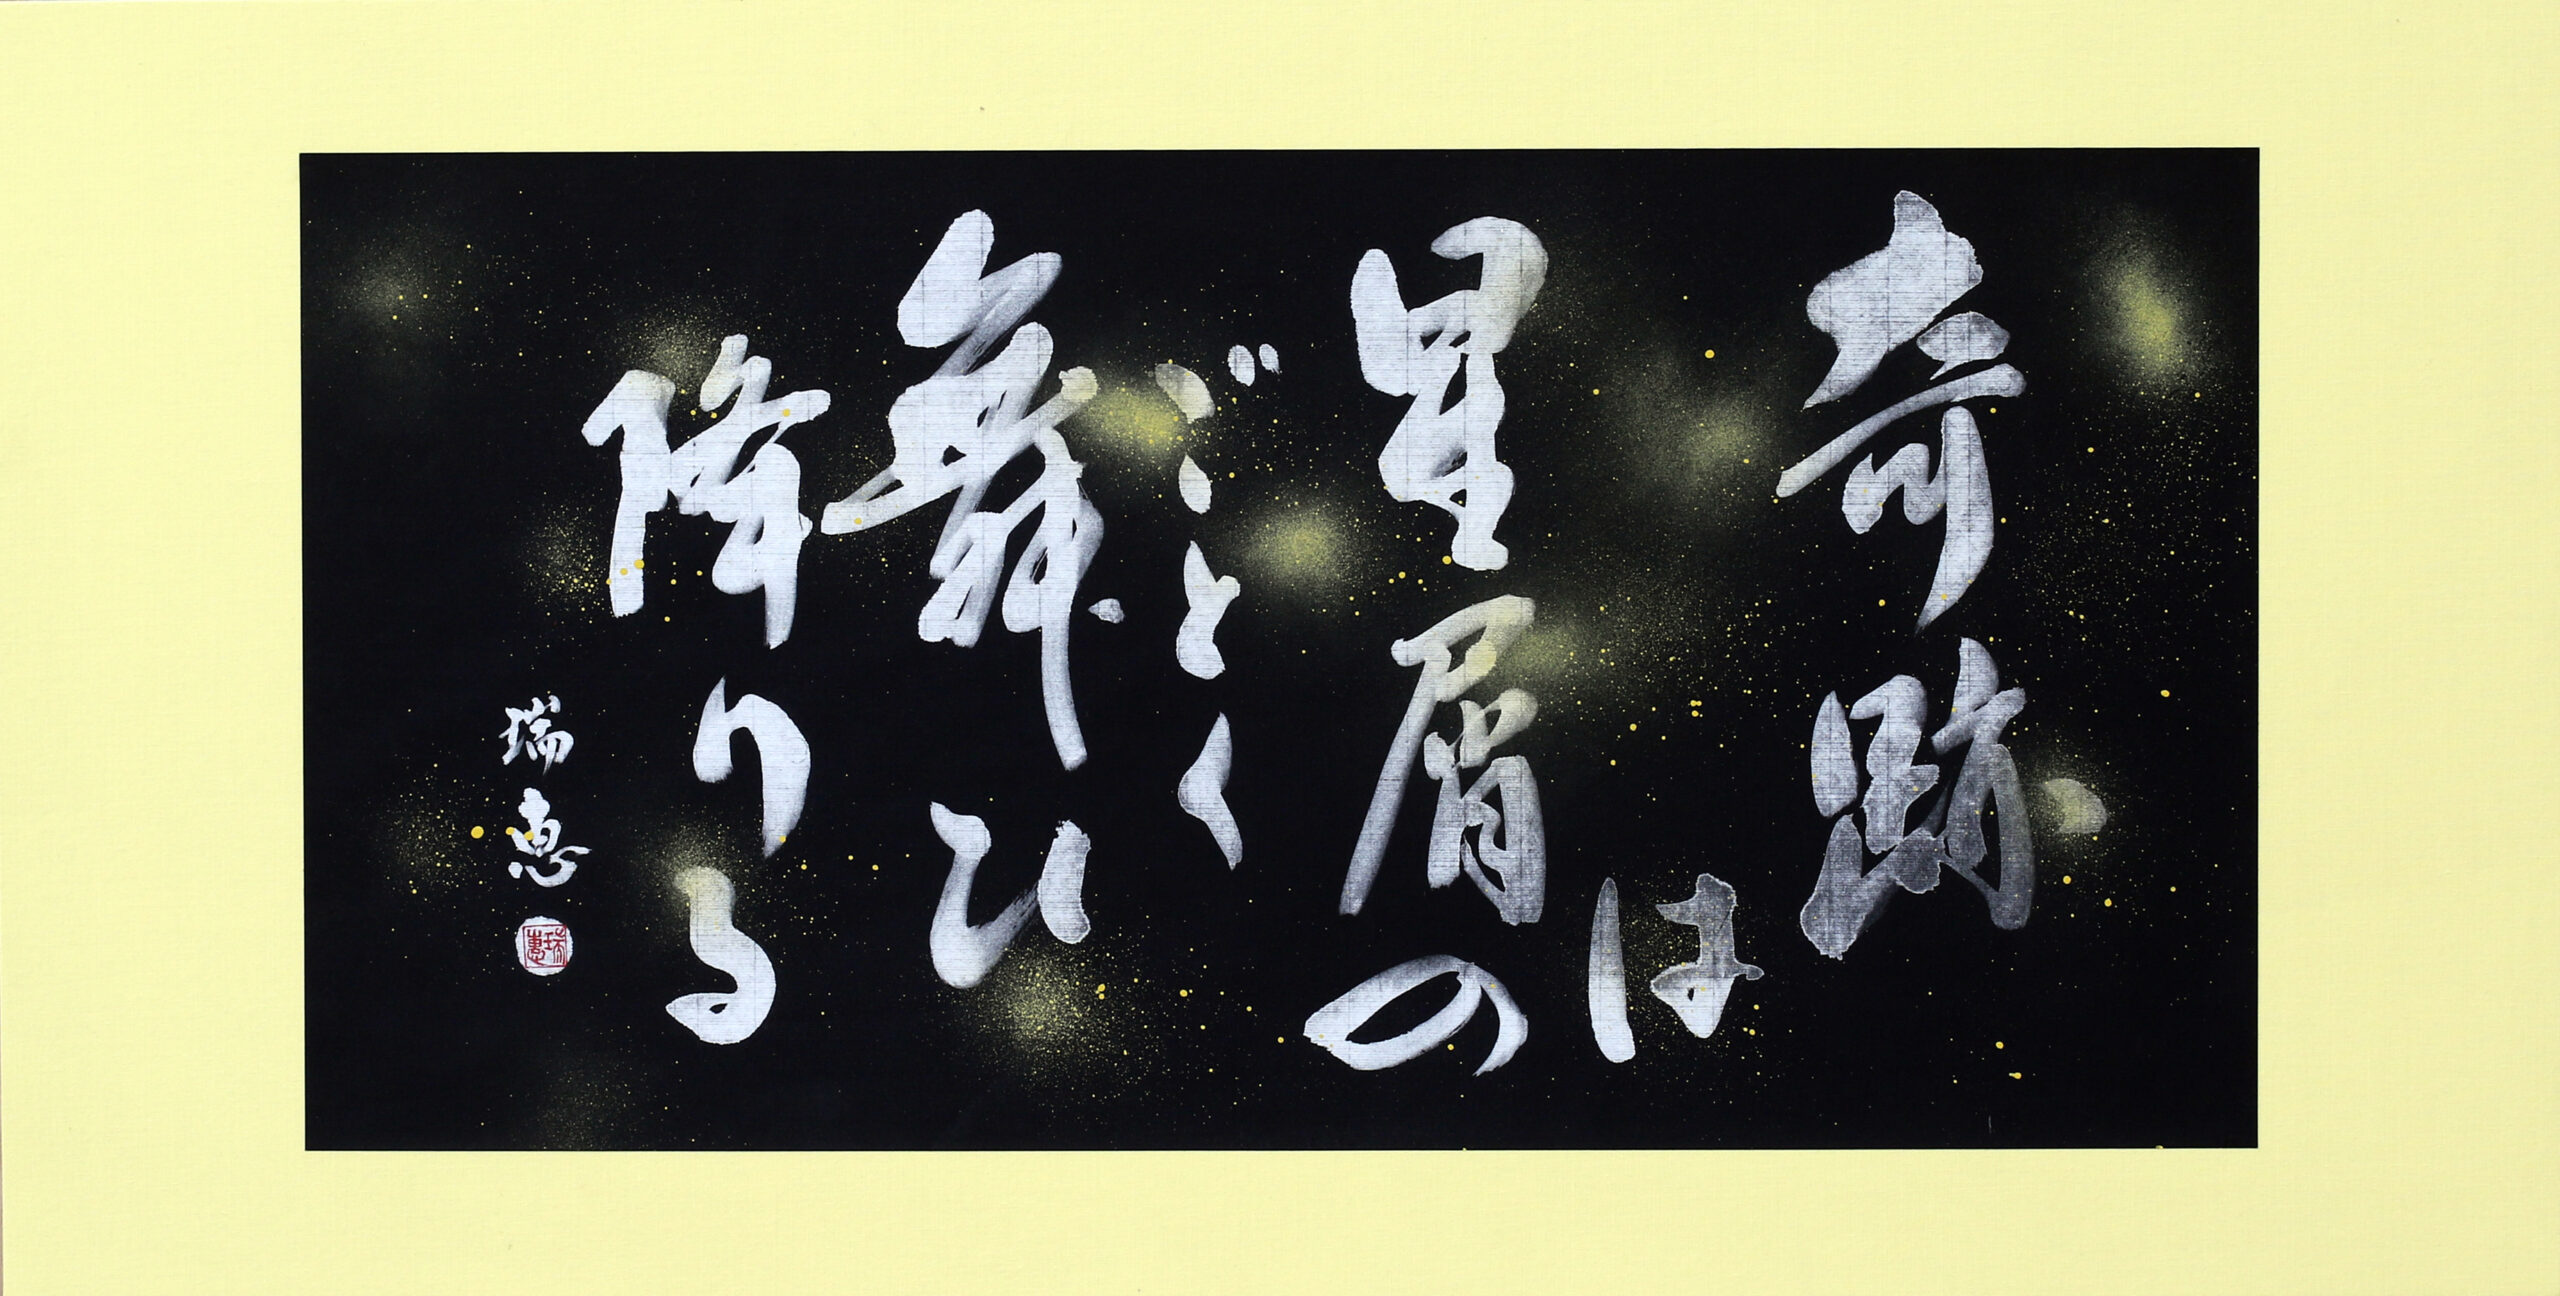 奇跡
は
星屑の
ごとく
舞ひ
降りる
瑞恵
瑞恵